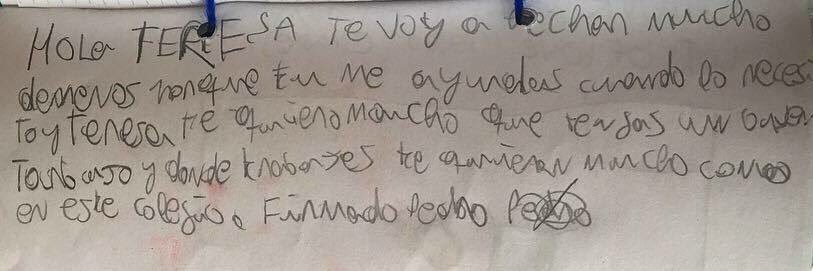 Hola TERESA Te voy a echar mucho
de menos porque tu me ayudas cuando lo neces
to y teresa te quiero mucho que tengas un buen
Trabajo y donde trabajes te quieran mucho como
en este colegio. Firmado Pedro